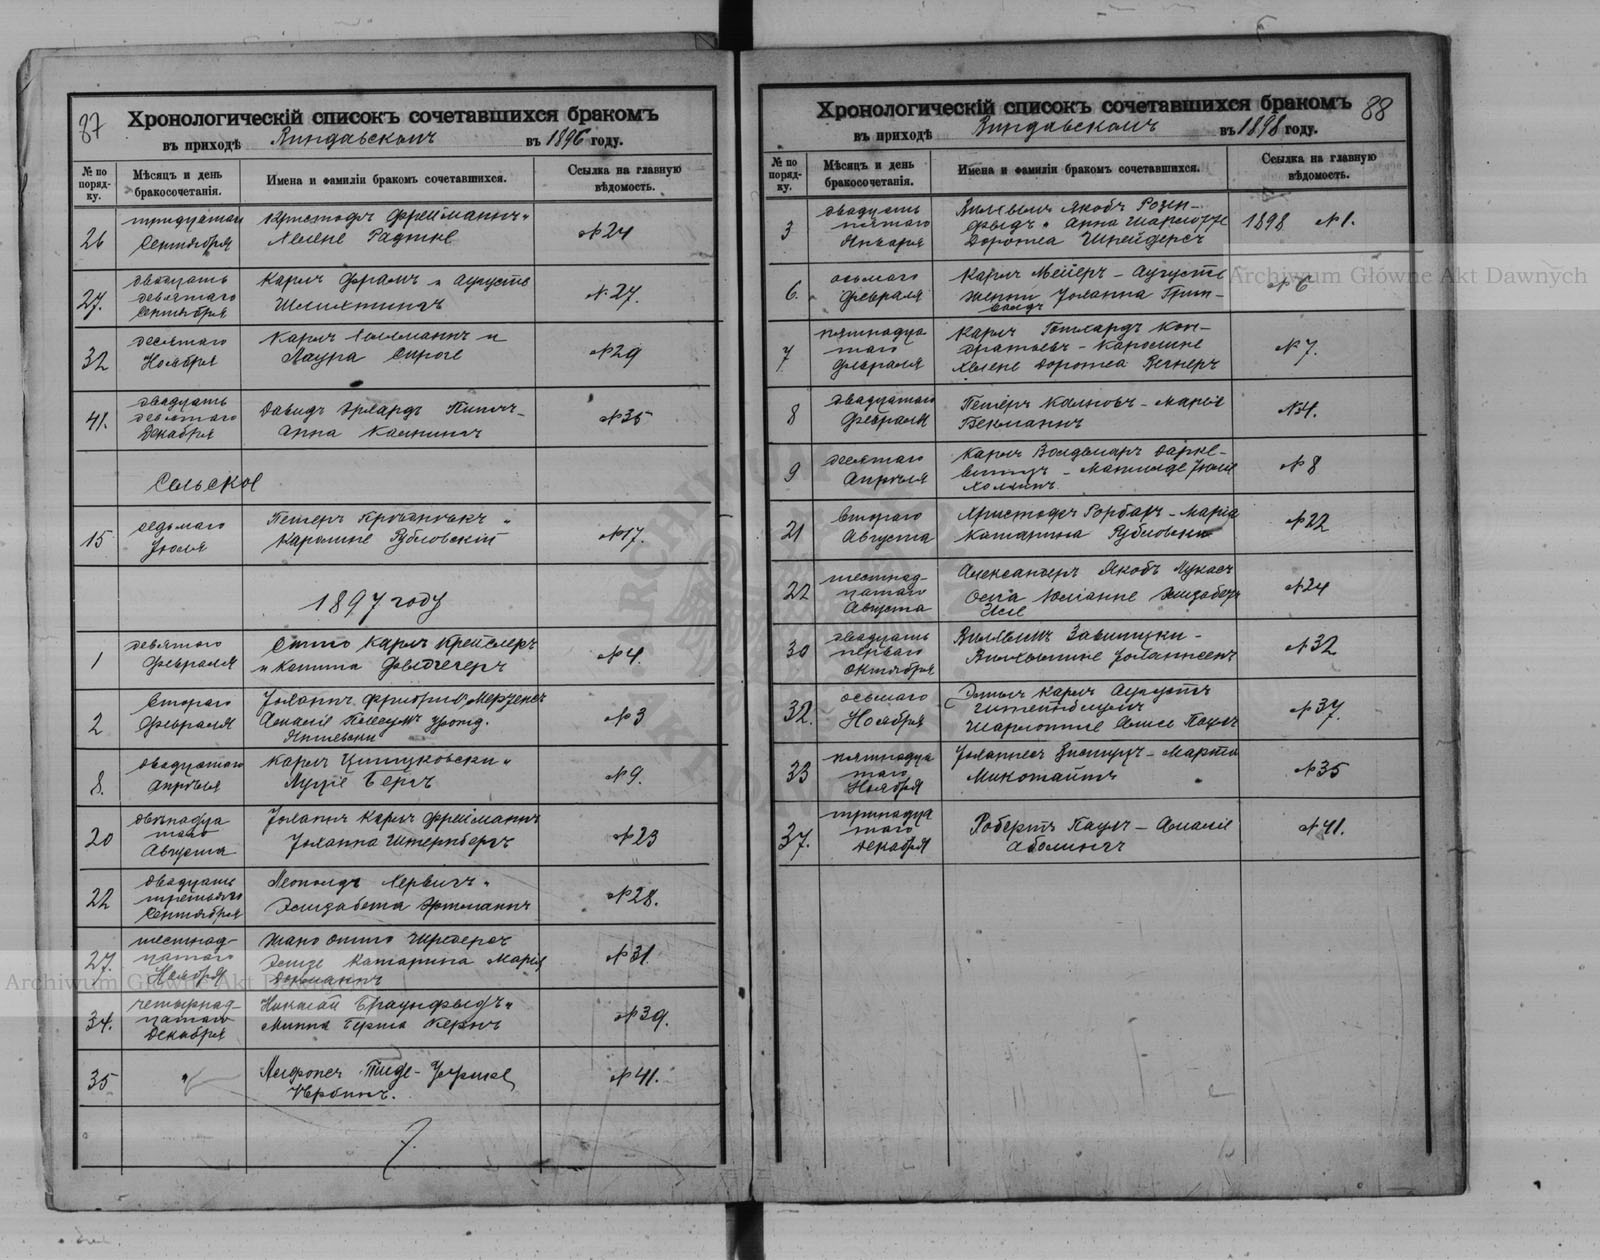 87
Хронологическій списокъ сочетавшихся бракомъ
въ приходѣ Виндавскомъ въ 1896 году.
№ по порядку.
Мѣсяцъ и день бракосочетанія.
Имена и фамиліи бракомъ сочетавшихся.
Ссылка на главную вѣдомость.
26
тридцатаго
Сентября
Кристофъ Фрейманнъ и
Хелене Радтке
№24
27.
двадцать
девятаго
Сентября
Карлъ и Аугусте
№27.
32
десятаго
Ноября
Карлъ и
Лаура Спроге
№29
41.
двадцать
девятаго
Декабря
Давидъ Эрнардъ
Анна Калнингъ
№35
Сельское
15
седьмаго
Іюля
Петеръ
Каролине Рубловскій
№17.
1897 году
1
девятаго
Февраля
Отто Карлъ Крейслеръ
и Катта
№4.
2
втораго
Февраля
Іоганнъ Фридрихъ
Амаліе
№3
8.
двадцатаго
Апрѣля
Карлъ и
Луціе Бергъ
№9.
20
двѣнадца
таго
Августа
Іоганнъ Карлъ Фрейманнъ
Іоханна Штернбергъ
№23
22
двадцать
третьяго
Сентября
Леопольдъ Хервигъ и
Элизабета Эртманнъ
№28.
27.
шестнад-
цатаго
Ноября
Жано Отто Шредеръ
Элизе Катарина Мария
№31.
34.
четырнад-
цатаго
Декабря
Николай Браунфельдъ и
Минна Берта Кернъ
№39.
35
"
Тиде-
№41.
88
Хронологическій списокъ сочетавшихся бракомъ
въ приходѣ Виндавскомъ въ 1898 году.
№ по порядку.
Мѣсяцъ и день бракосочетанія.
Имена и фамиліи бракомъ сочетавшихся.
Ссылка на главную вѣдомость.
3
двадцать
пятаго
Января
Вильгельмъ Якобъ Розен-
фельдъ и Анна Шарлотте
Доротеа Шнейдеръ
1898 №1.
6.
осьмаго
Февраля
Карлъ Мейеръ - Аугусте
Женни Іоганна Грин-
вальдъ
№6
7
пятнадца
таго
Февраля
Карлъ Готхардъ Кон-
дратьевъ - Каролине
Хелене Доротеа Вегнеръ
№7.
8
двадцатаго
Февраля
Петеръ - Марье
Бекманнъ
№4.
9
десятаго
Апрѣля
Карлъ Волдемаръ Дарке-
вицъ - Матильде Юліе
№8
21
втораго
Августа
Христофъ Горбанъ - Маріа
Катарина Рубловски
№22
22
шестнад-
цатаго
Августа
Александеръ Якобъ Лукасъ
Юліанне Элизабет
№24
30
двадцать
перваго
Октября
Вильгельмъ Завитцки -
Вильгельмине Іоганнсенъ
№32
32.
осьмаго
Ноября
Эмиль Карлъ Аугустъ
Шарлотте Алисе Паулъ
№37.
33
пятнадца
таго
Ноября
Іоганнесъ - Марта
№35
37.
тринадца
таго
Декабря
Робертъ Паулъ - Амаліе
Аболингъ
№41.
Archiwum Główne Akt Dawnych
Archiwum Główne Akt Dawnych